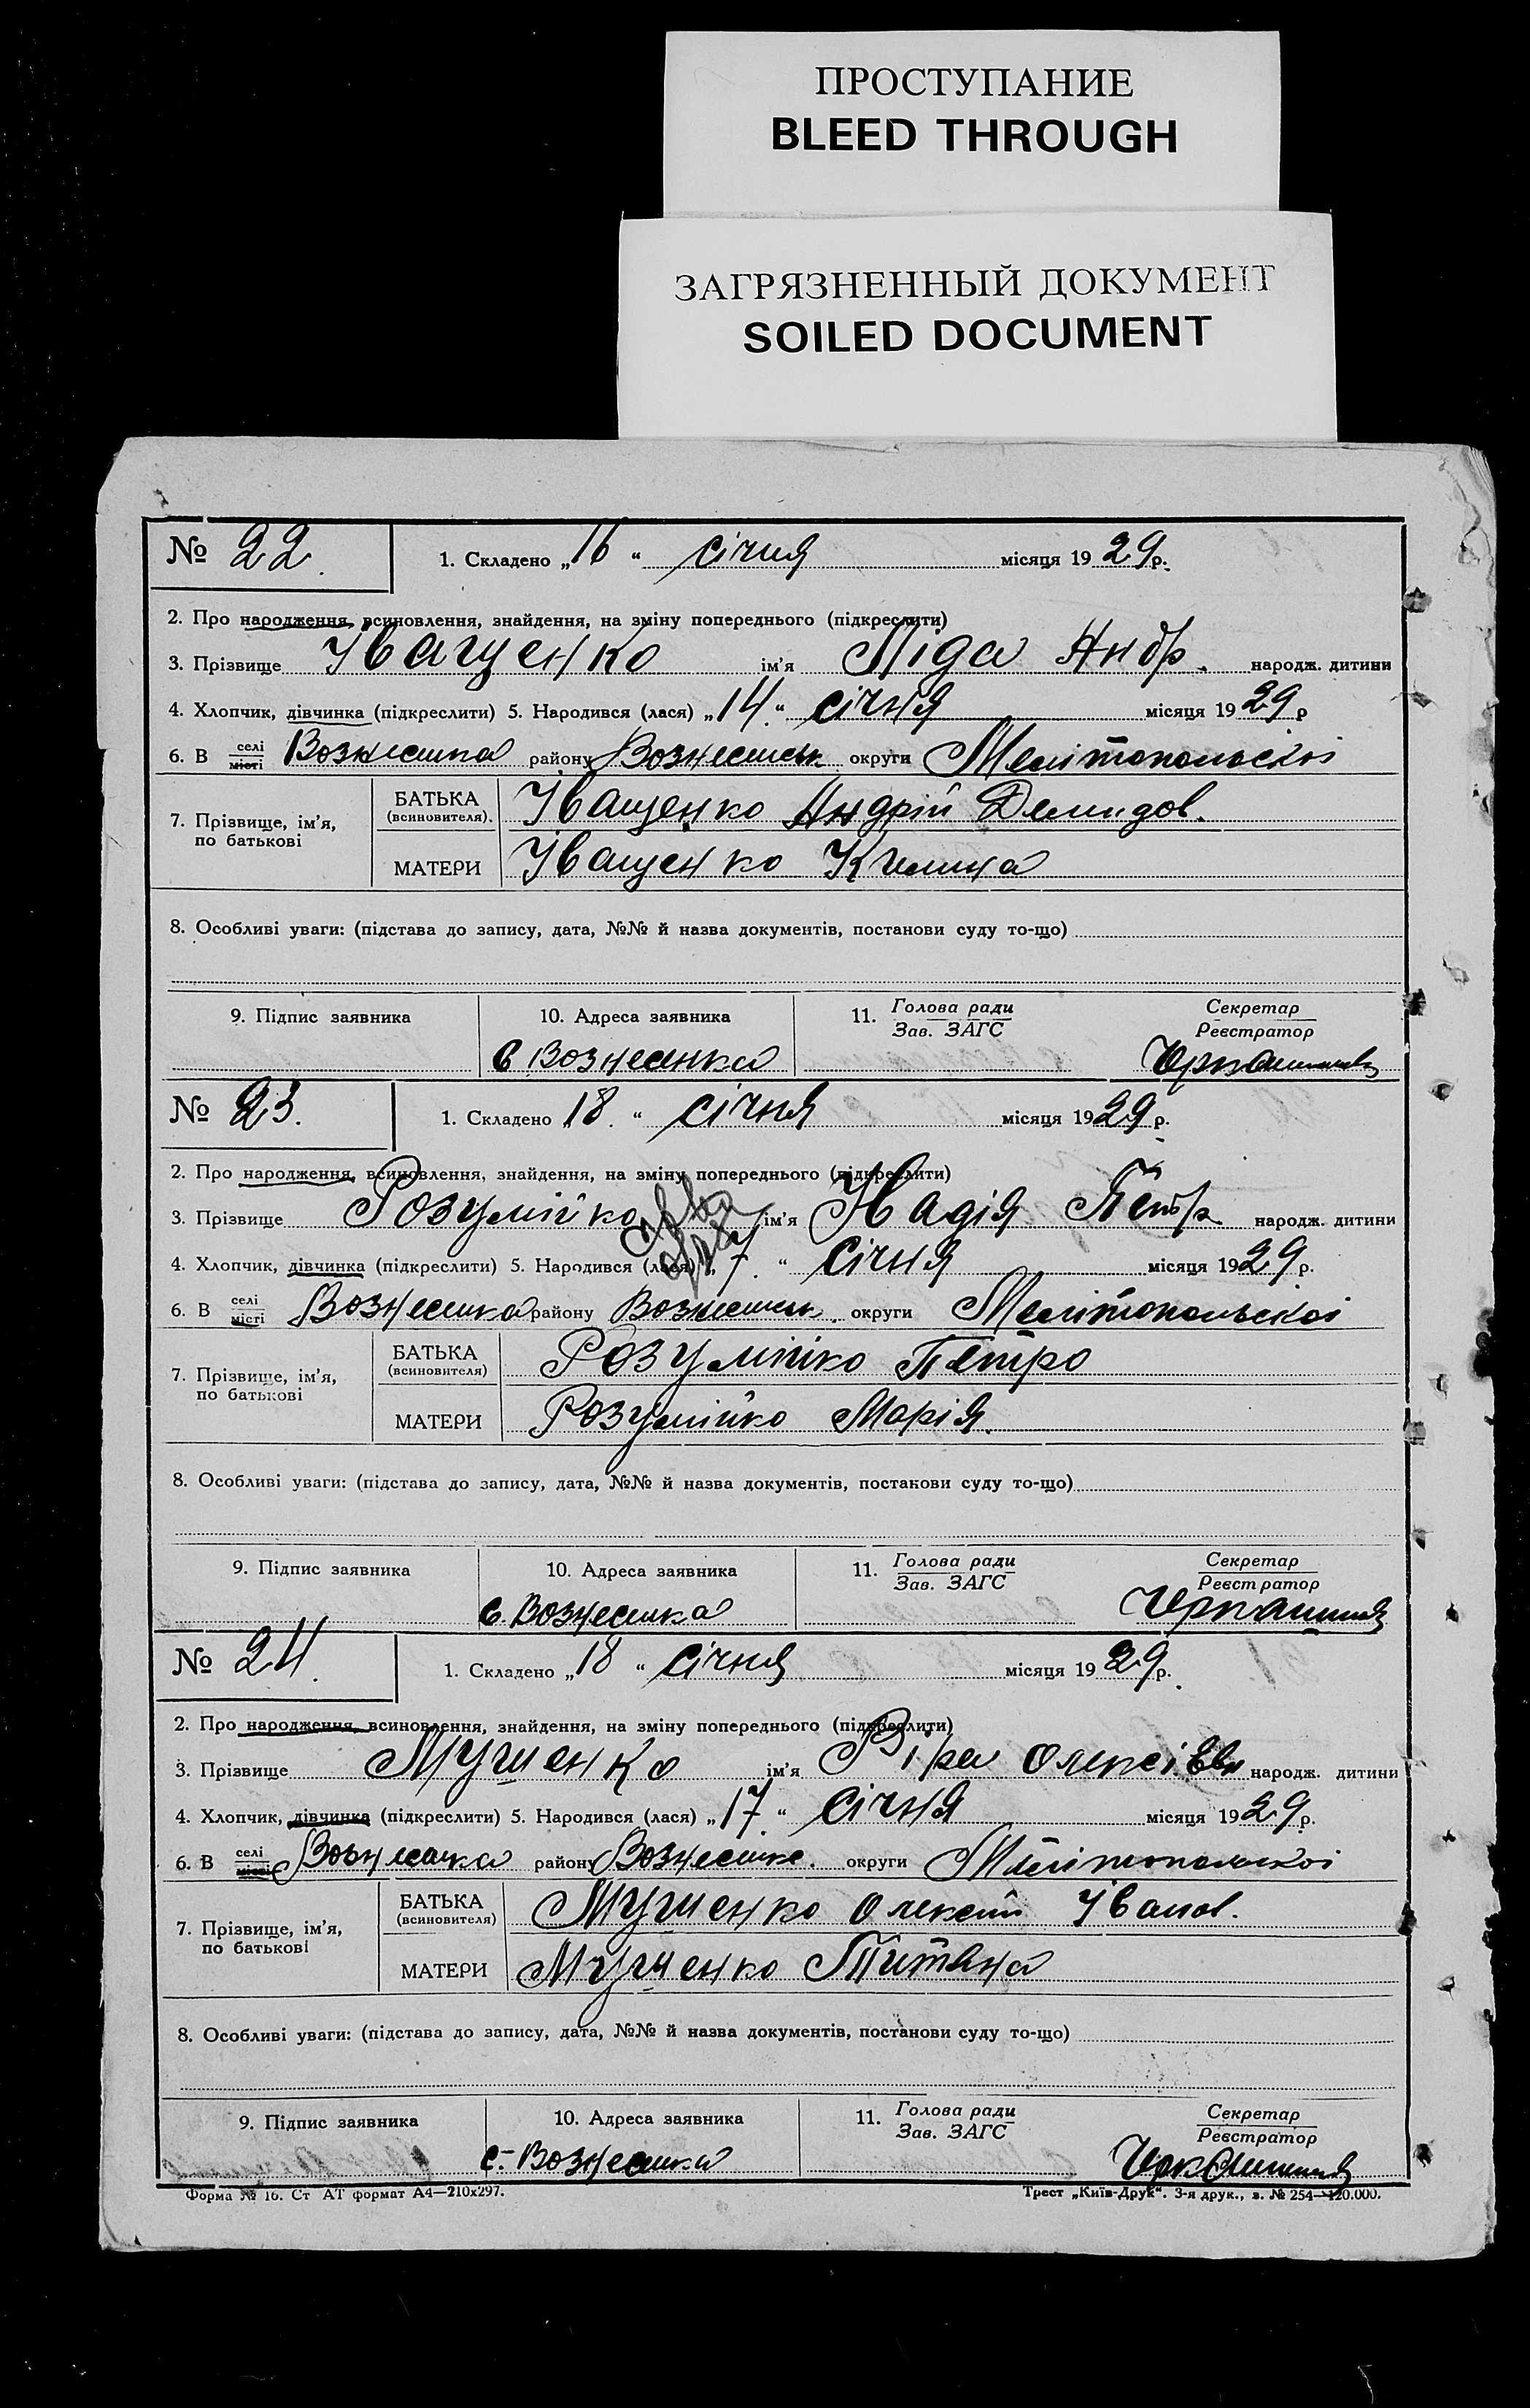 ПРОСТУПАНИЕ
BLEED THROUGH
ЗАГРЯЗНЕННЫЙ ДОКУМЕНТ
SOILED DOCUMENT
№ 22. 1. Складено „16“ січня місяця 1929р.
2. Про народження, всиновлення, знайдення, на зміну попереднього (підкреслити)
3. Прізвище Іващенко ім'я Ліда Андр. народж. дитини
4. Хлопчик, дівчинка (підкреслити) 5. Народився (лася) „14“ січня місяця 1929р
6. В селі місті Вознесенка району Вознесенськ округи Мелітопольскої
7. Прізвище, ім'я, по батькові
БАТЬКА (всиновителя). Іващенко Андрій Демидов.
МАТЕРИ Іващенко Килина
8. Особливі уваги: (підстава до запису, дата, №№ й назва документів, постанови суду то-що)
9. Підпис заявника 10. Адреса заявника 11. Голова ради Зав. ЗАГС Секретар Реєстратор
с Вознесенка
№ 23. 1. Складено „18“ січня місяця 1929р.
2. Про народження, всиновлення, знайдення, на зміну попереднього (підкреслити)
3. Прізвище Розумійко ім'я Надія Петр народж. дитини
4. Хлопчик, дівчинка (підкреслити) 5. Народився (лася) „7“ січня місяця 1929р.
6. В селі місті Вознесенка району Вознесенськ. округи Мелітопольскої
7. Прізвище, ім'я, по батькові
БАТЬКА (всиновителя) Розумійко Петро
МАТЕРИ Розумійко Марія.
8. Особливі уваги: (підстава до запису, дата, №№ й назва документів, постанови суду то-що)
9. Підпис заявника 10. Адреса заявника 11. Голова ради Зав. ЗАГС Секретар Реєстратор
с. Вознесенка
№ 24. 1. Складено „18“ січня місяця 1929р.
2. Про народження, всиновлення, знайдення, на зміну попереднього (підкреслити)
3. Прізвище Мушенко ім'я Віра Олексіївн народж. дитини
4. Хлопчик, дівчинка (підкреслити) 5. Народився (лася) „17“ січня місяця 1929р.
6. В селі місті Вознесенка району Вознесенс. округи Мелітопольскої
7. Прізвище, ім'я, по батькові
БАТЬКА (всиновителя) Мушенко Олексій Іванов.
МАТЕРИ Мушенко Титяна
8. Особливі уваги: (підстава до запису, дата, №№ й назва документів, постанови суду то-що)
9. Підпис заявника 10. Адреса заявника 11. Голова ради Зав. ЗАГС Секретар Реєстратор
с. Вознесенка
Форма № 16. Ст АТ формат А4—210x297. Трест „Київ-Друк“. 3-я друк., з. № 254—120.000.